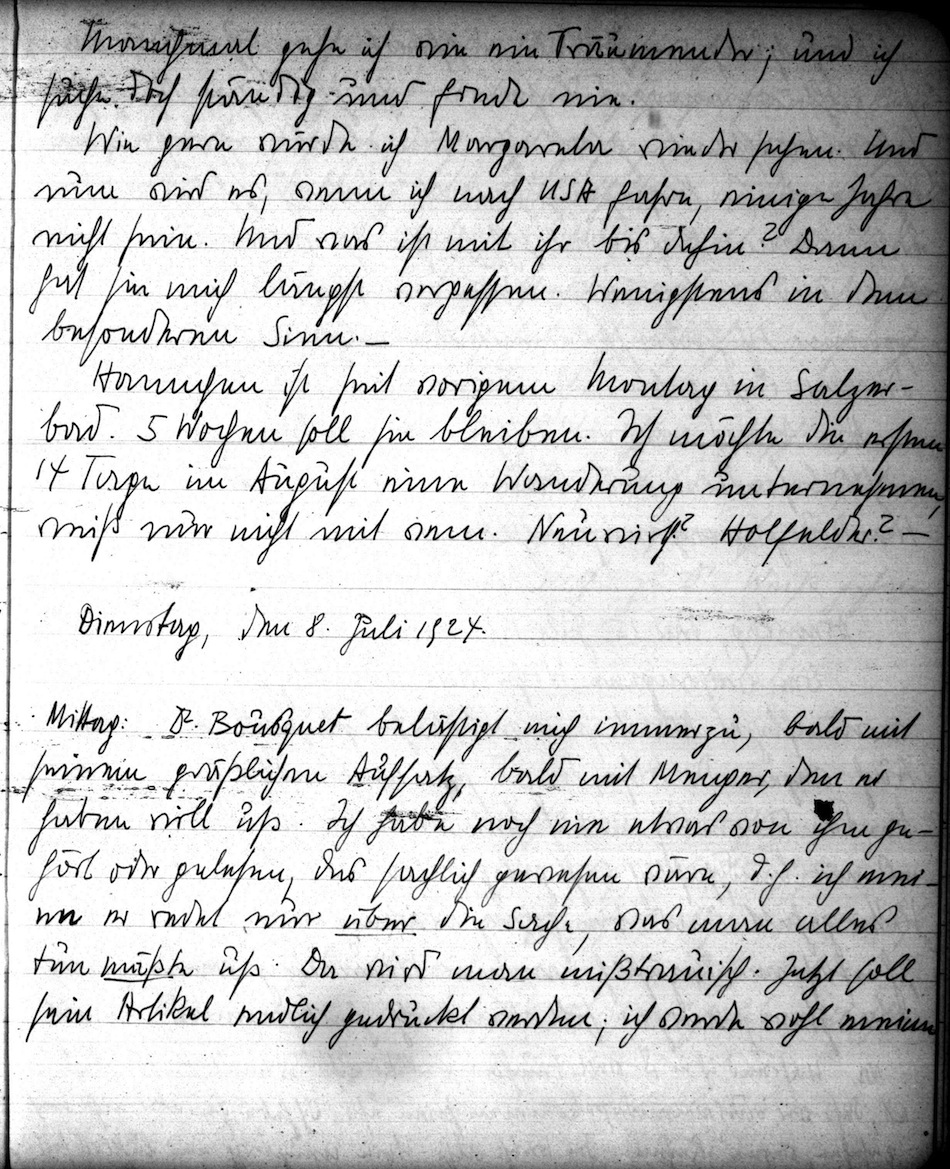 Manchmal gehe ich wie ein Träumender; und ich
suche doch ständig und finde nie.
Wie gern würde ich Margarete wieder sehen. Und
nun wird es, wenn ich nach USA fahre, einige Jahre
nicht sein. Und was ist mit ihr bis dahin? Dann
hat sie mich längst vergessen. Wenigstens in dem
besonderen Sinn. —
Hannchen ist seit vorigem Montag in Salzer-
bad. 5 Wochen soll sie bleiben. Ich möchte die ersten
14 Tage im August eine Wanderung unternehmen,
weiß nur nicht mit wem. Neuwirth? Holfelder? —
Dienstag, den 8. Juli 1924.
Mittag: Dr. Bousquet belästigt mich immerzu, bald mit
seinem gräßlichen Aufsatz, bald mit Menger, den er
haben will usf. Ich habe noch nie etwas von ihm ge-
hört oder gelesen, das sachlich gewesen wäre, d.h. ich mei-
ne er redet nur über die Sache, was man alles
tun müßte usf. Da wird man mißtrauisch. Jetzt soll
sein Artikel endlich gedruckt werden; ich werde wohl meinen